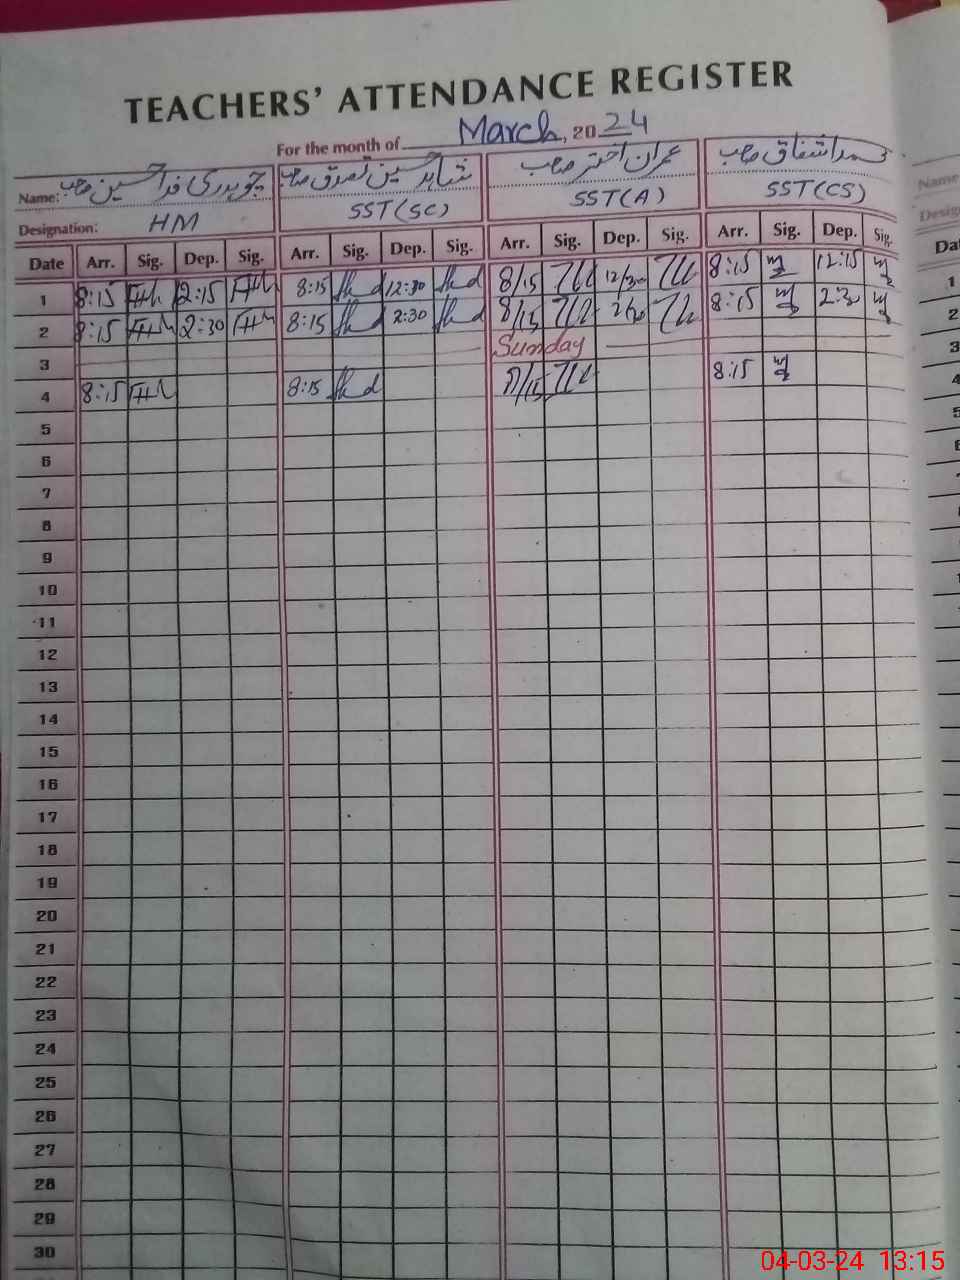 TEACHERS' ATTENDANCE REGISTER
For the month of March, 2024
Name: چوہدری فدا حسین صاحب شاہد حسین تصدق صاحب عمران اختر صاحب محمد اشفاق صاحب Name
Designation: HM SST(SC) SST(A) SST(CS)
Date Arr. Sig. Dep. Sig. Arr. Sig. Dep. Sig. Arr. Sig. Dep. Sig. Arr. Sig. Dep. Sig.
1 8:15 2:15 8:15 12:30 8/15 12/30 8:15 12:15 1
2 8:15 2:30 8:15 2:30 8/15 2/30 8:15 2:30 2
3 Sunday 3
4 8:15 8:15 8/15 8:15 4
5
6
7
8
9
10
11
12
13
14
15
16
17
18
19
20
21
22
23
24
25
26
27
28
29
30
04-03-24 13:15